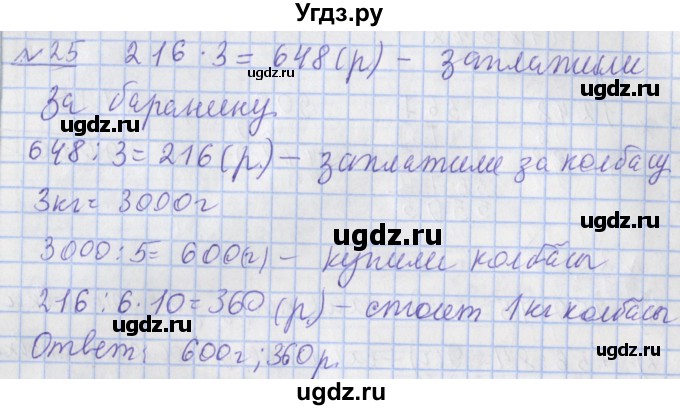 Угдз.ру
№25 216 · 3 = 648 (р) – заплатили
ugdz.ru
за баранину
ugdz.ru
648 : 3 = 216 (р.) – заплатили за колбасу
ugdz.ru
3кг = 3000г
ugdz.ru
ugdz.ru
3000 : 5 = 600(г) – купили колбасы
ugdz.ru
216 : 6 · 10 = 360 (р.) – стоит 1 кг колбасы
ugdz.ru
Ответ: 600г; 360р.
ugdz.ru
ugdz.ru